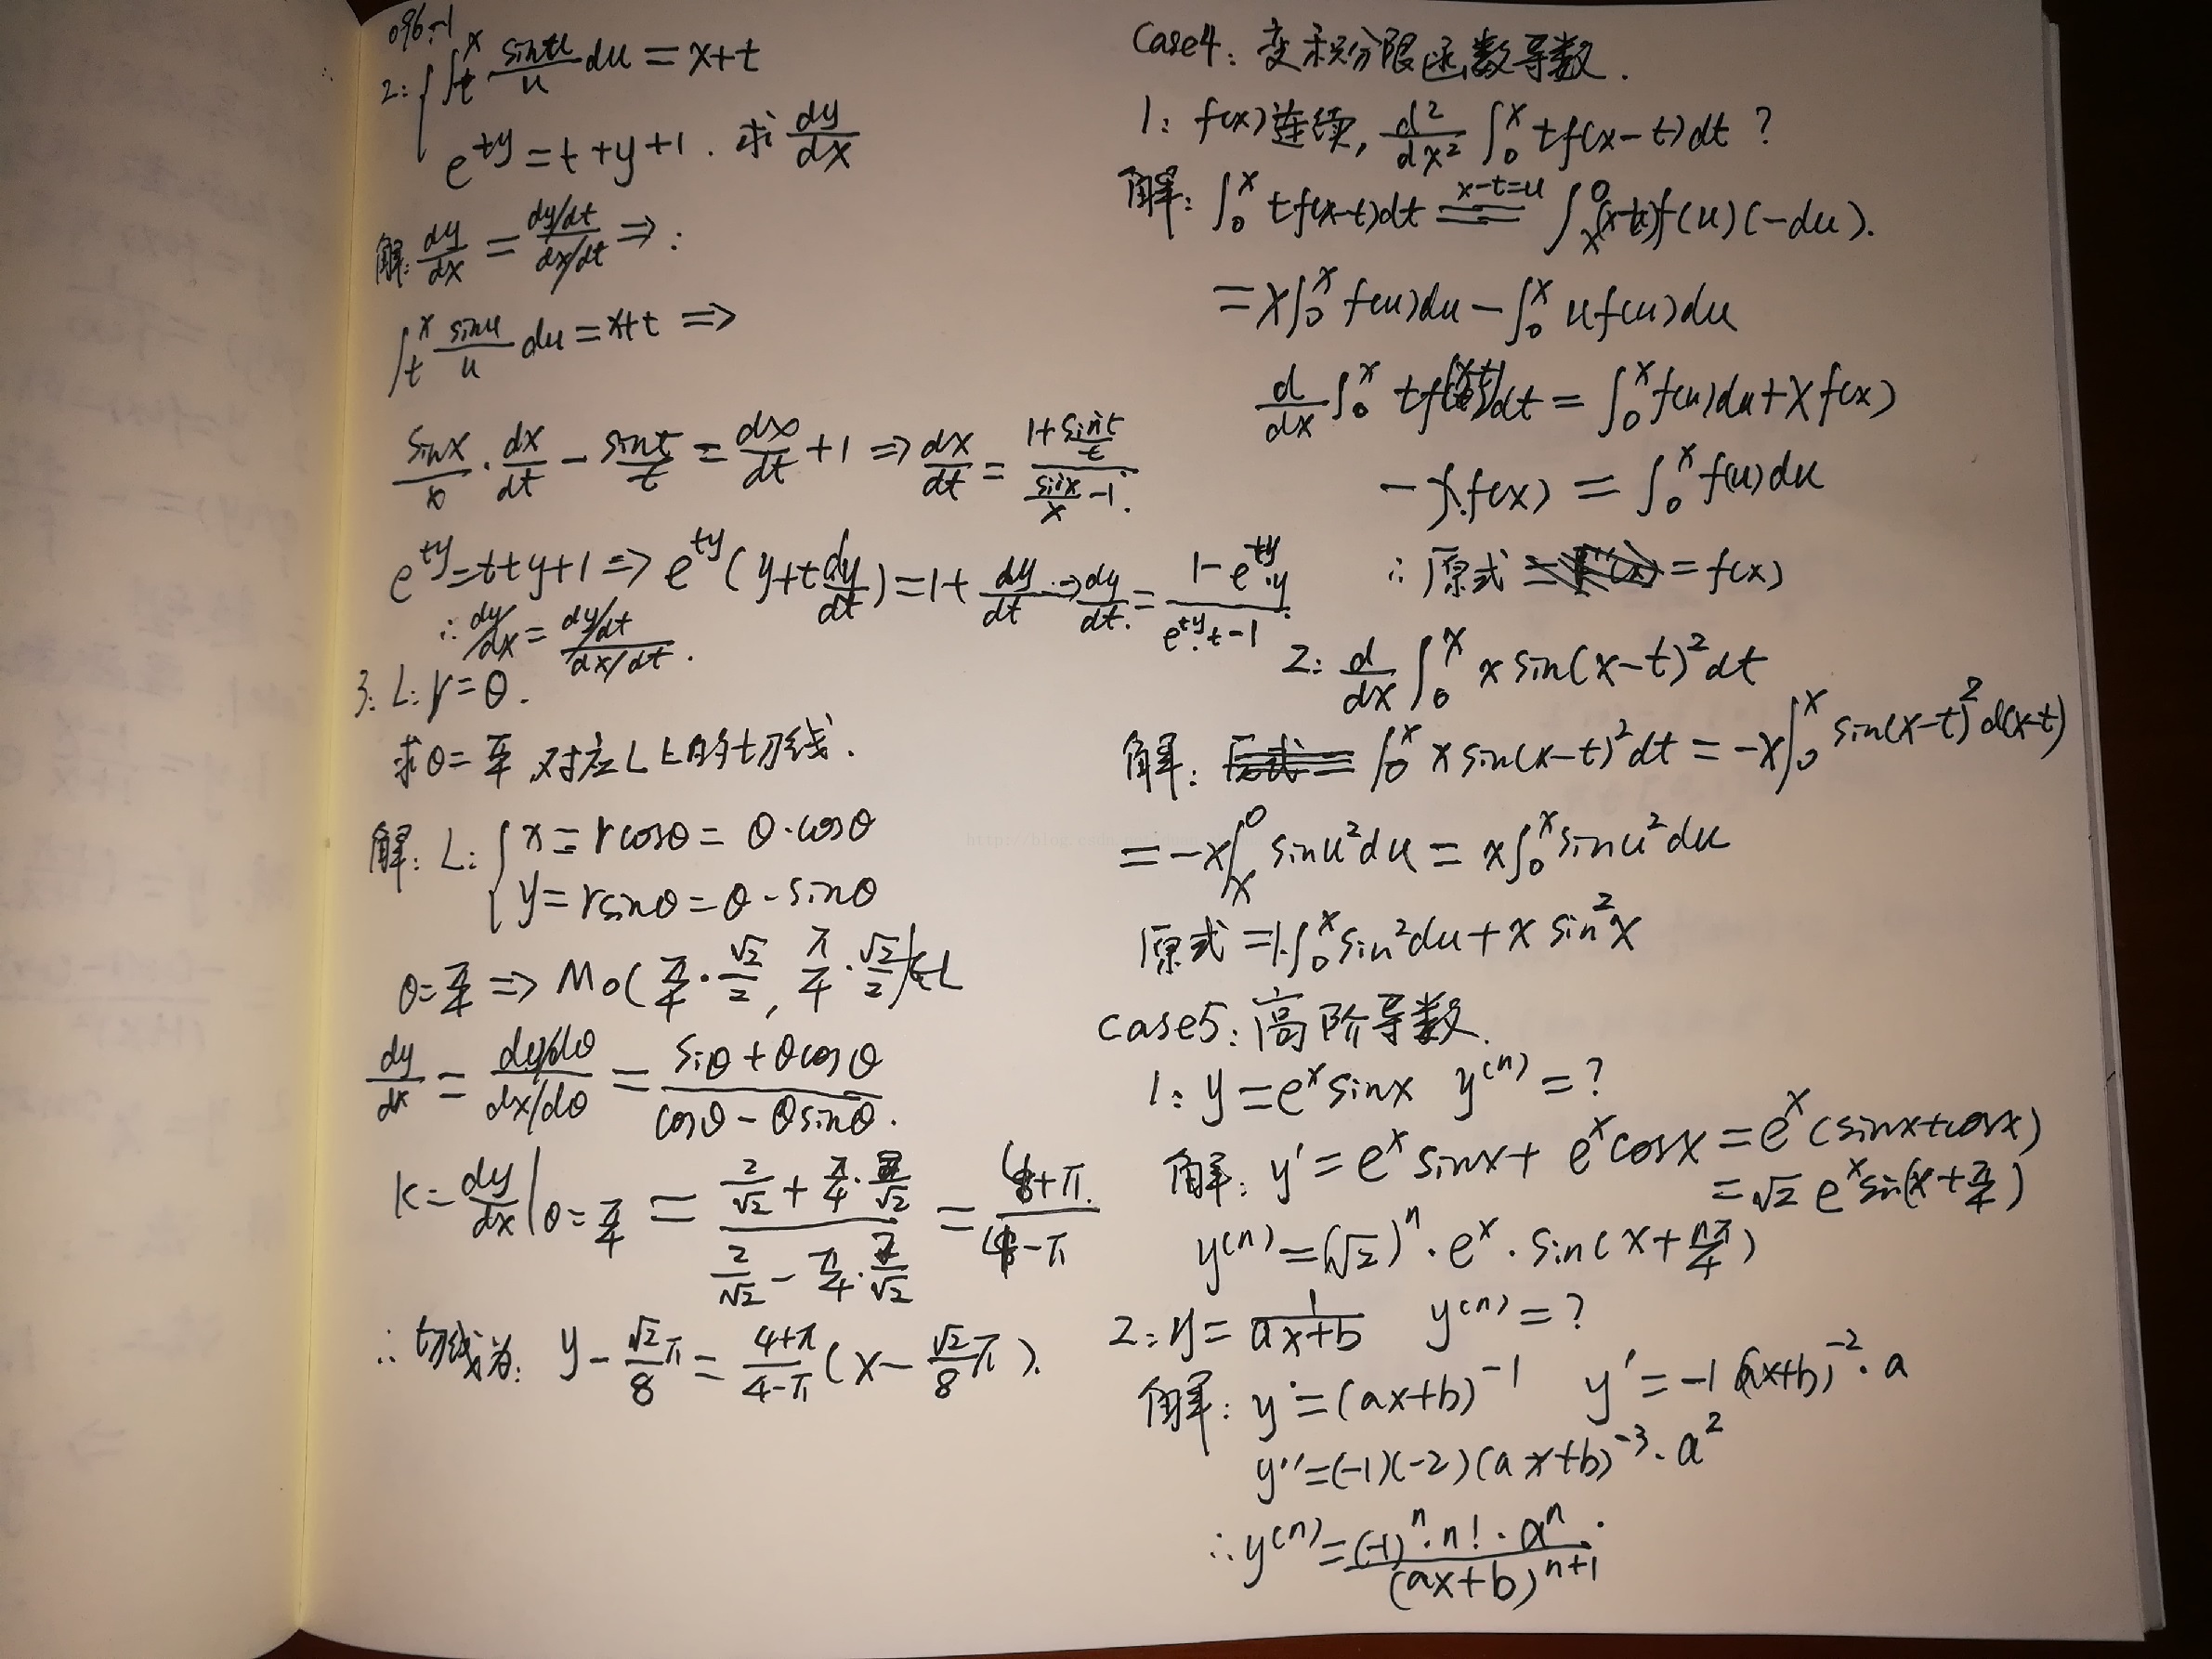 096-1
2: { ∫_t^x sinu/u du = x+t
e^{ty} = t+y+1. 求 dy/dx
解: dy/dx = (dy/dt)/(dx/dt) ⇒:
∫_t^x sinu/u du = x+t ⇒
sinx/x · dx/dt - sint/t = dx/dt + 1 ⇒ dx/dt = (1+sint/t)/(sinx/x -1).
e^{ty} = t+y+1 ⇒ e^{ty}(y+t dy/dt) = 1+ dy/dt ⇒ dy/dt = (1-e^{ty}·y)/(e^{ty}·t-1).
∴ dy/dx = (dy/dt)/(dx/dt).
3: L: r=θ.
求θ=π/4, 对应L上的切线.
解: L: { x = rcosθ = θ·cosθ
y = rsinθ = θ·sinθ
θ=π/4 ⇒ M₀(π/4·√2/2, π/4·√2/2)∈L
dy/dx = (dy/dθ)/(dx/dθ) = (siθ+θcosθ)/(cosθ-θsinθ).
K = dy/dx |θ=π/4 = (2/√2 + π/4·2/√2)/(2/√2 - π/4·2/√2) = (4+π)/(4-π)
∴切线为: y - √2/8 π = (4+π)/(4-π) (x - √2/8 π).
Case4: 变积分限函数导数.
1: f(x)连续, d²/dx² ∫_0^x tf(x-t)dt ?
解: ∫_0^x tf(x-t)dt =(x-t=u)= ∫_x^0 (x-u)f(u)(-du).
= x∫_0^x f(u)du - ∫_0^x uf(u)du
d/dx ∫_0^x tf(x-t)dt = ∫_0^x f(u)du + xf(x)
- x·f(x) = ∫_0^x f(u)du
∴原式 = f(x)
2: d/dx ∫_0^x x sin(x-t)² dt
解: ∫_0^x x sin(x-t)² dt = -x∫_0^x sin(x-t)² d(x-t)
= -x∫_x^0 sinu² du = x∫_0^x sinu² du
原式 = 1·∫_0^x sin² du + x sin² x
case5: 高阶导数.
1: y = e^x sinx y^(n) = ?
解: y' = e^x sinx + e^x cosx = e^x (sinx+cosx)
= √2 e^x sin(x+π/4)
y^(n) = (√2)^n · e^x · sin(x + nπ/4)
2: y = 1/(ax+b) y^(n) = ?
解: y = (ax+b)^{-1} y' = -1(ax+b)^{-2}·a
y'' = (-1)(-2)(ax+b)^{-3}·a²
∴ y^(n) = (-1)^n·n!·a^n/(ax+b)^{n+1}.